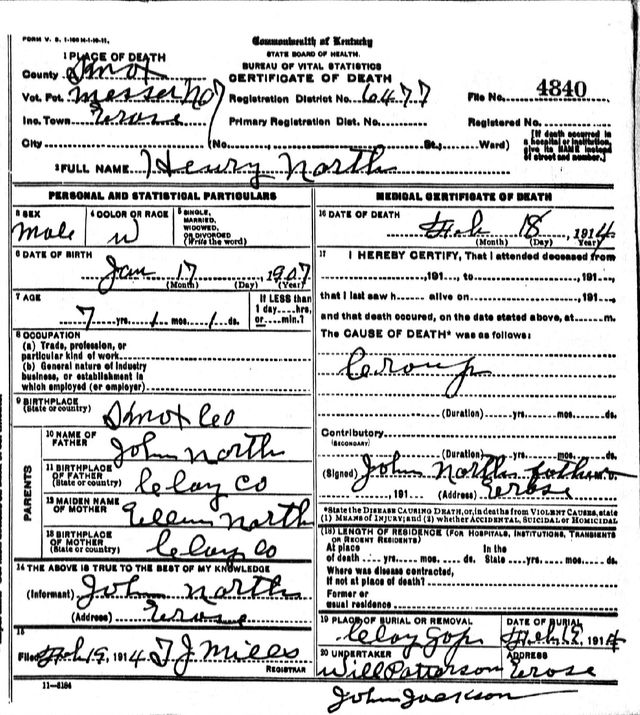 FORM V. S. 1-100
Commonwealth of Kentucky
STATE BOARD OF HEALTH.
BUREAU OF VITAL STATISTICS
CERTIFICATE OF DEATH
1 PLACE OF DEATH
County Knox
Vot. Pct. Messer No 7
Inc. Town Erose
City (No. St., Ward)
Registration District No. 6477
Primary Registration Dist. No.
File No. 4840
Registered No.
[If death occurred in a hospital or institution, give its NAME instead of street and number.]
2 FULL NAME Henry North
PERSONAL AND STATISTICAL PARTICULARS
3 SEX
Male
4 COLOR OR RACE
W
5 SINGLE, MARRIED, WIDOWED, OR DIVORCED (Write the word)
6 DATE OF BIRTH
Jan 17, 1907
(Month) (Day) (Year)
7 AGE
7 yrs. 1 mos. 1 ds.
If LESS than 1 day....hrs, or....min.?
8 OCCUPATION
(a) Trade, profession, or
particular kind of work
(b) General nature of industry
business, or establishment in
which employed (or employer)
9 BIRTHPLACE
(State or country) Knox Co
PARENTS
10 NAME OF FATHER John North
11 BIRTHPLACE OF FATHER (State or country) Clay Co
12 MAIDEN NAME OF MOTHER Ellen North
13 BIRTHPLACE OF MOTHER (State or country) Clay Co
14 THE ABOVE IS TRUE TO THE BEST OF MY KNOWLEDGE
(Informant) John North
(Address) Erose
15
Filed Feb 19, 1914 T J Mills
REGISTRAR
11-3184
MEDICAL CERTIFICATE OF DEATH
16 DATE OF DEATH
Feb 18, 1914
(Month) (Day) (Year)
17 I HEREBY CERTIFY, That I attended deceased from
, 191 , to , 191 ,
that I last saw h alive on , 191 ,
and that death occured, on the date stated above, at m.
The CAUSE OF DEATH* was as follows:
Croup
(Duration) yrs. mos. ds.
Contributory
(SECONDARY)
(Duration) yrs. mos. ds.
(Signed) John North father M. D.
, 191 (Address) Erose
*State the DISEASE CAUSING DEATH, or, in deaths from VIOLENT CAUSES, state
(1) MEANS OF INJURY; and (2) whether ACCIDENTAL, SUICIDAL or HOMICIDAL
(18) LENGTH OF RESIDENCE (FOR HOSPITALS, INSTITUTIONS, TRANSIENTS
OR RECENT RESIDENTS)
At place of death yrs. mos. ds. In the State yrs. mos. ds.
Where was disease contracted,
if not at place of death?
Former or
usual residence
19 PLACE OF BURIAL OR REMOVAL
Clay Gap
DATE OF BURIAL
Feb 19, 1914
20 UNDERTAKER
Will Patterson
ADDRESS
Erose
John Jackson